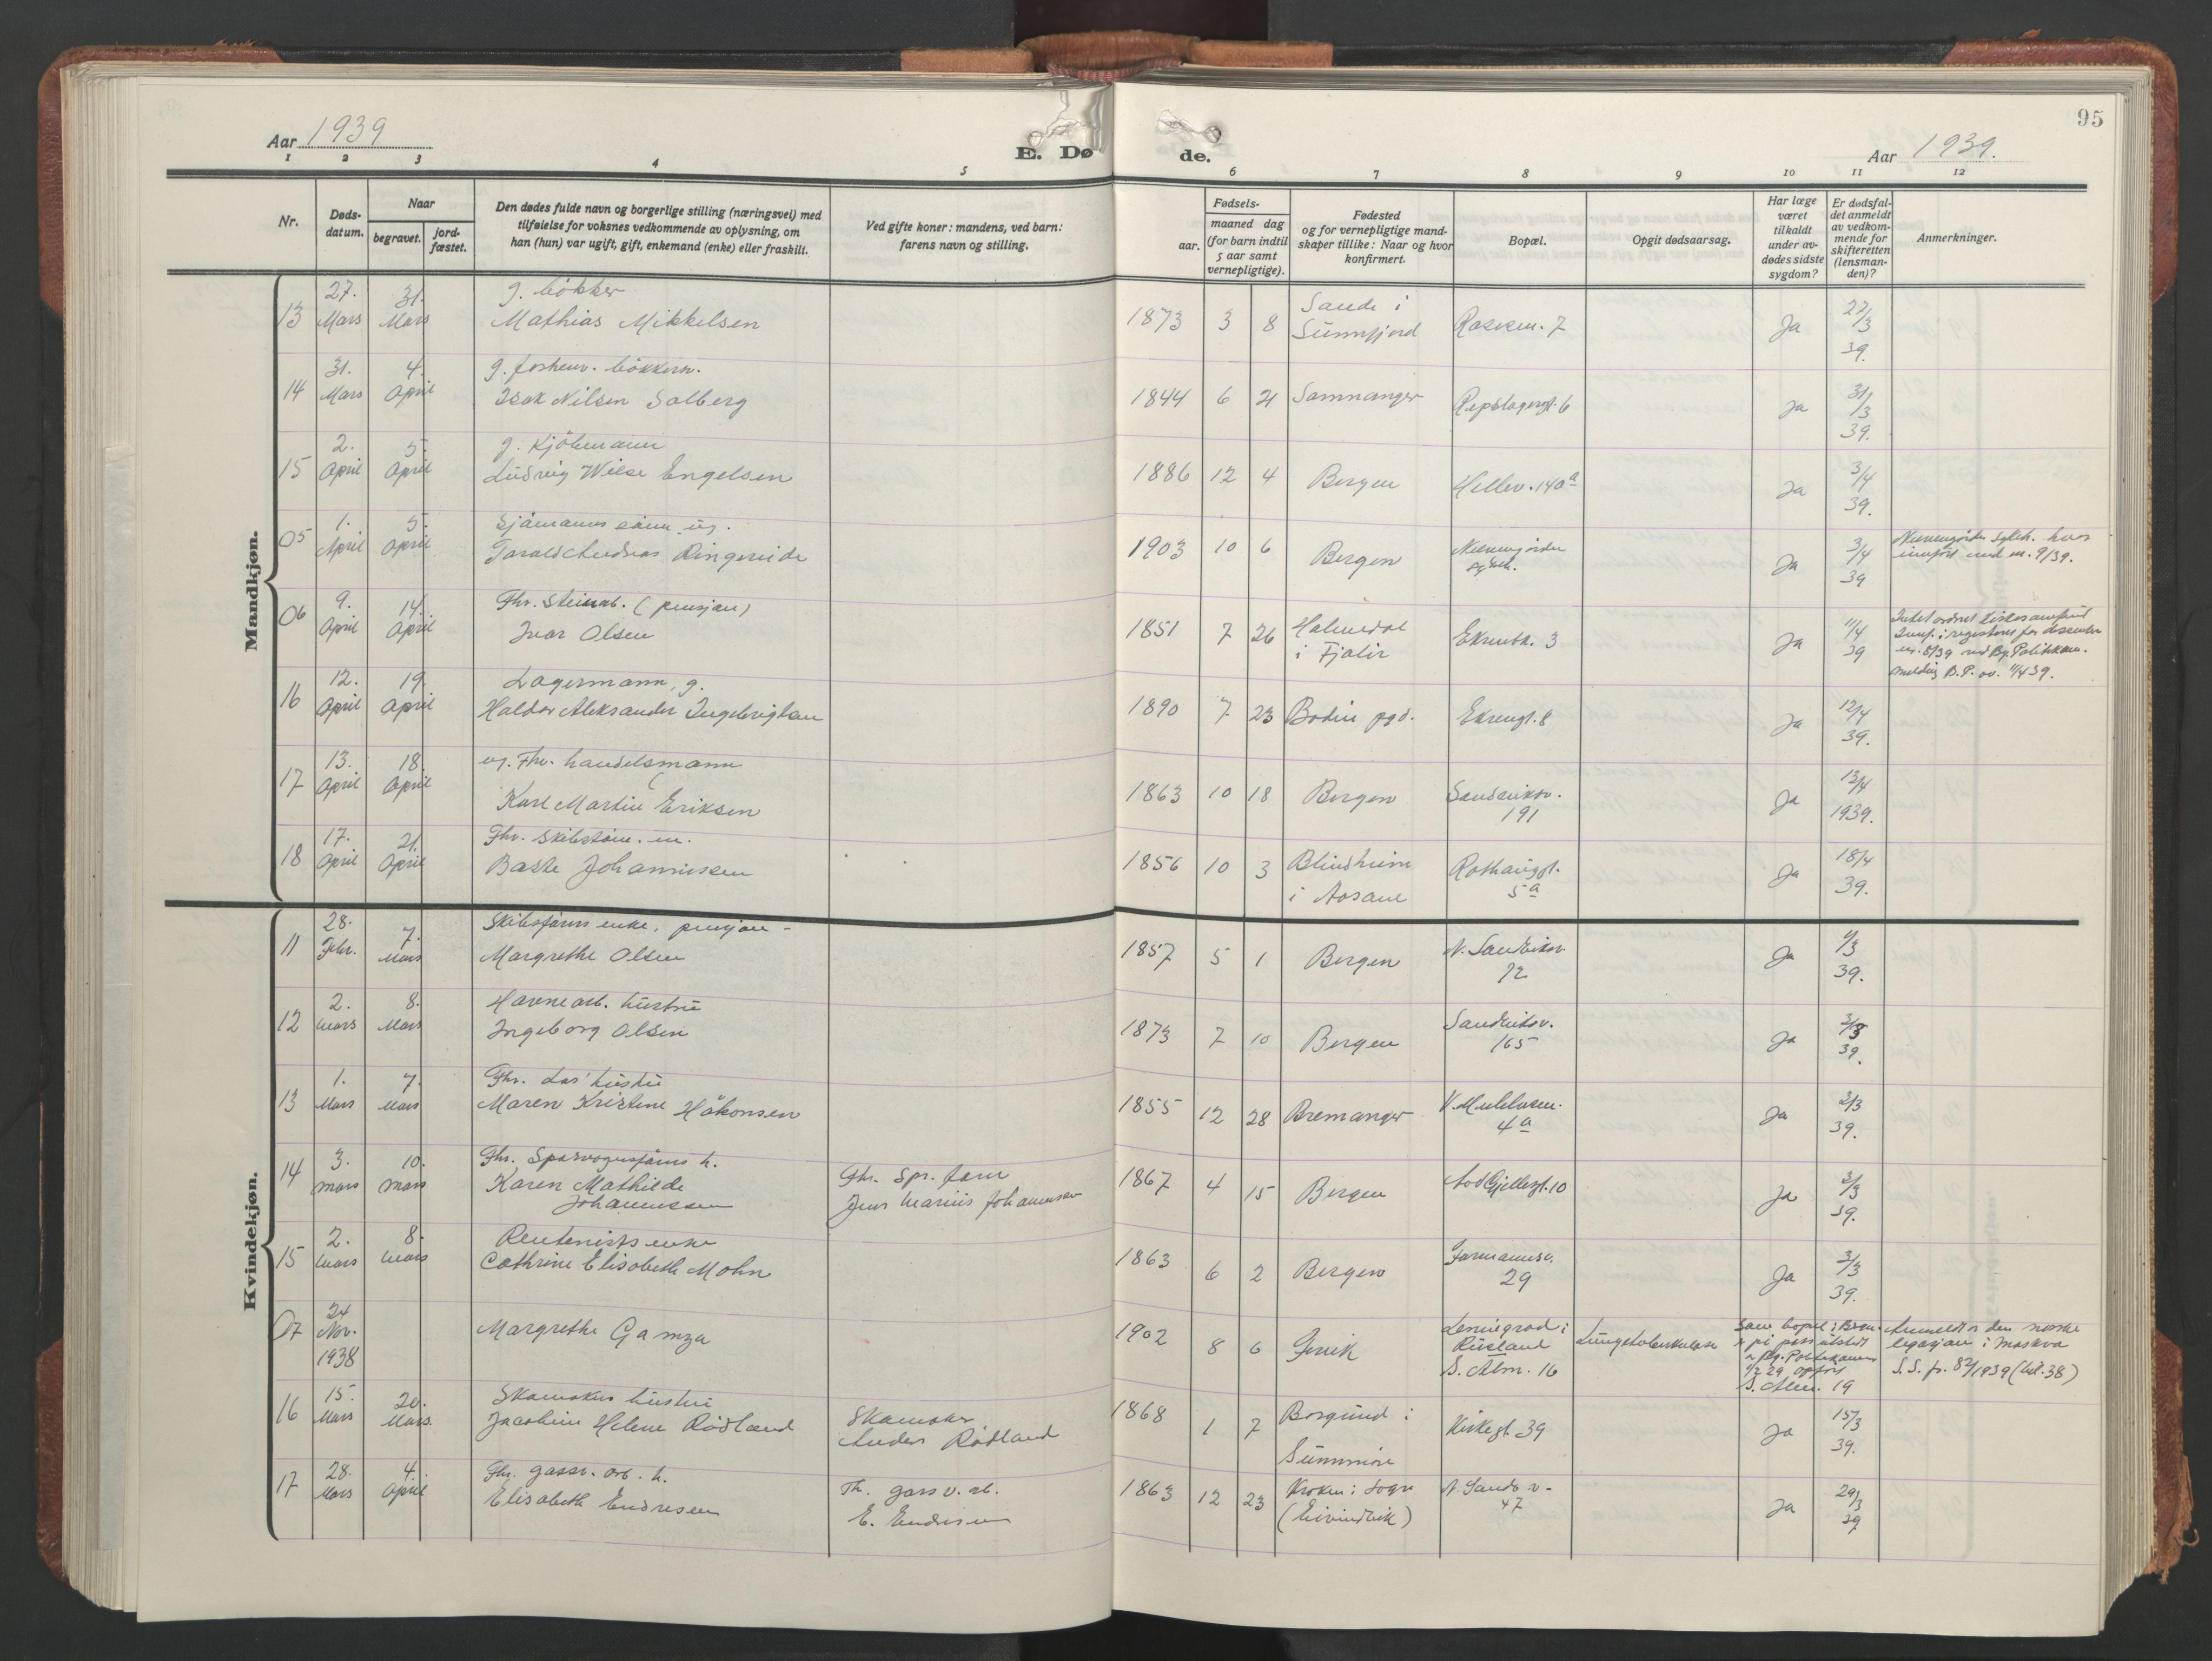 95
Aar 1939
E. Dø de.
Aar 1939.
1 2 3 4 5 6 7 8 9 10 11 12
Nr.
Døds-
datum.
Naar
begravet.
jord-
fæstet.
Den dødes fulde navn og borgerlige stilling (næringsvei) med
tilføielse for voksnes vedkommende av oplysning, om
han (hun) var ugift, gift, enkemand (enke) eller fraskilt.
Ved gifte koner: mandens, ved barn:
farens navn og stilling.
Fødsels-
aar.
maaned dag
(for barn indtil
5 aar samt
vernepligtige).
Fødested
og for vernepligtige mand-
skaper tillike: Naar og hvor
konfirmert.
Bopæl.
Opgit dødsaarsag.
Har læge
været
tilkaldt
under av-
dødes sidste
sygdom?
Er dødsfal-
det anmeldt
av vedkom-
mende for
skifteretten
(lensman-
den)?
Anmerkninger.
Mandkjøn.
13 27. Mars 31. Mars
g. bøkker
Mathias Mikkelsen
1873 3 8
Sande i
Sunnfjord
7
Ja
22/3
39.
14 31. Mars 4. April
g. bøkkerv.
Isak Nilsen Solberg
1844 6 21
Samnanger
Repslagergt. 6
Ja
31/3
39.
15 2. April 5. April
g. Kjøbmann
Ludvig Wiese Engelsen
1886 12 4
Bergen
Hellev. 140a
Ja
3/4
39.
05 1. April 5. April
Sjømanns sønn ug.
Tarald Andreas Ringereide
1903 10 6
Bergen
Neevengården
sykeh.
Ja
3/4
39
Neevengården sykeh. hvor
innført med nr. 9/39.
06 9. April 14. April
Fhv. steinarb. (pensjon)
Ivar Olsen
1851 7 26
Holmedal
i Fjaler
Ekrenbk. 3
Ja
11/4
39
16 12. April 19. April
Lagermann, g.
Haldor Aleksander Ingebrigtsen
1890 7 23
Bodin pgd.
Ekrengt. 8
Ja
12/4
39.
17 13. April 18. April
ug. Fhv. handelsmann
Karl Martin Eriksen
1863 10 18
Bergen
Sandviksv.
191
Ja
13/4
1939.
18 17. April 21. April
Fhv. skibstøm. m.
Baste Johannissen
1856 10 3
Blindheim
i Aasane
Rothauggt.
5a
Ja
18/4
39.
Kvindekjøn.
11 28. Febr. 7. Mars
Skibsførers enke, pensjon -
Margrethe Olsen
1857 5 1
Bergen
N. Sandviksv.
72
Ja
1/3
39.
12 2. Mars 8. Mars
Havnearb. hustru
Ingeborg Olsen
1873 7 10
Bergen
Sandviksv.
165
Ja
3/3
39.
13 1. Mars 7. Mars
Fhv. Los' hustru
Maren Kristine Håkonsen
1855 12 28
Bremanger
4a
Ja
2/3
39.
14 3. Mars 10. Mars
Fhv. Sporvognsførers h.
Karen Mathilde
Johannessen
Fhv. Spv. fører
Jens Marius Johannessen
1867 4 15
Bergen
Aad Gjellesgt. 10
Ja
3/3
39.
15 2. Mars 8. Mars
Rentenists enke
Cathrine Elisabeth Mohn
1863 6 2
Bergen
Formannsv.
29
Ja
3/3
39.
07 24 Nov. 1938
Margrethe Gamza
1902 8 6
Leningrad i
Russland
S. Alm. 16
Lungetuberkulose
S. Alm. 19
Anmeldt av den norske
legasjon i Moskva
S. S. fr. 82/1939 (bil. 38)
16 15. Mars 20. Mars.
Skomakers hustru
Jacobine Helene Rødland
Skomaker
Anders Rødland
1868 1 7
Borgund i
Sunnmøre
Kirkegt. 39
Ja
15/3
39.
17 28. Mars 4. April
Fhv. gassv. arb. h.
Elisabeth Endresen
Fh. gassv. arb.
E. Endresen
1863 12 23
Kroken i Sogn
(Eivindvik)
N. Sandv. v-
47
Ja
29/3
39